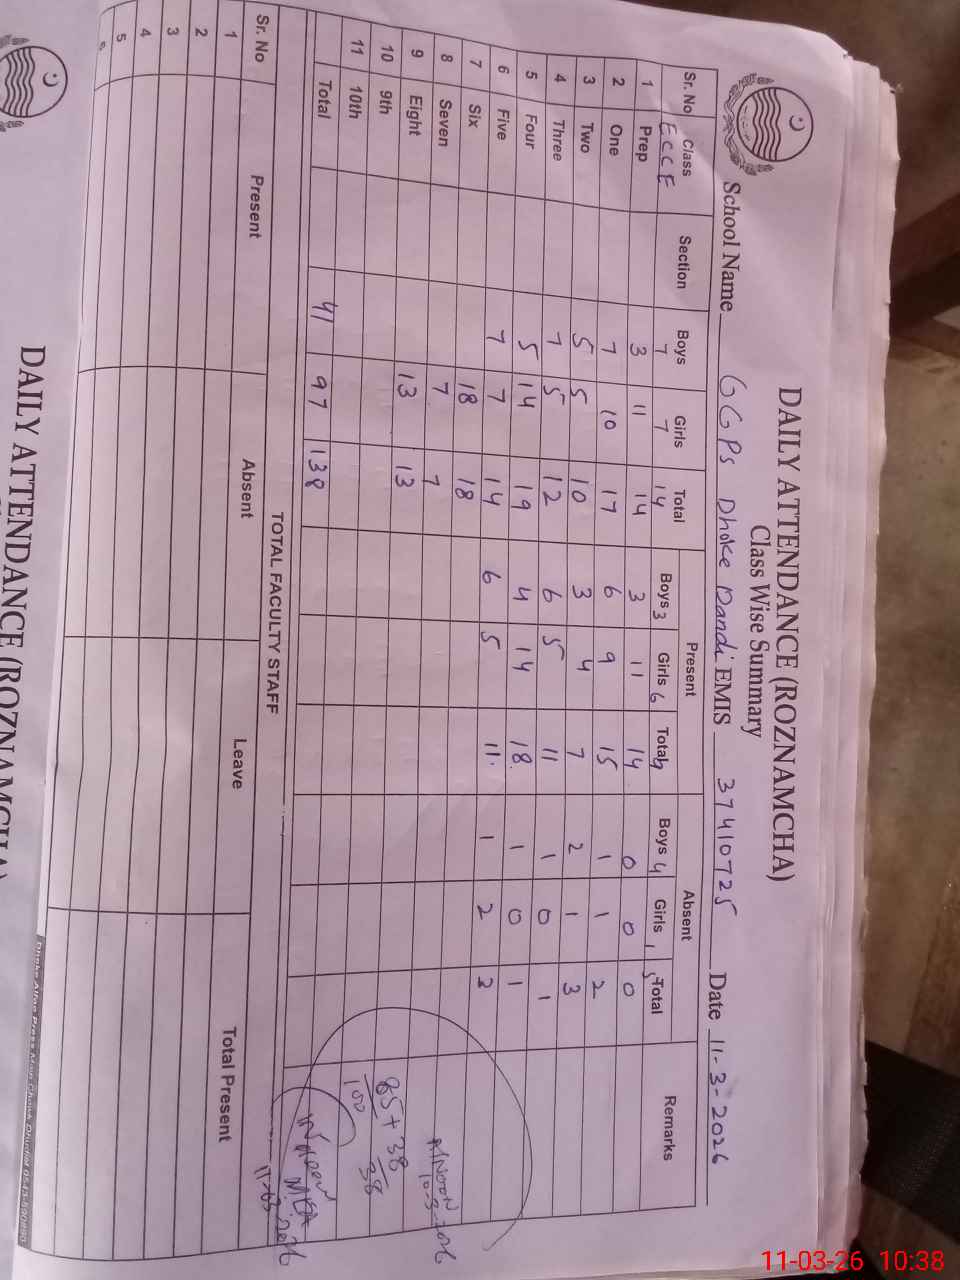 DAILY ATTENDANCE (ROZNAMCHA)
Class Wise Summary
School Name GGPS Dhoke Dandi EMIS 37410725 Date 11-3-2026
Sr. No Class Section Boys Girls Total Present Absent Remarks
Boys Girls Total Boys Girls Total
ECCE 7 7 14 3 6 9 4 1 5
1 Prep 3 11 14 3 11 14 0 0 0
2 One 7 10 17 6 9 15 1 1 2
3 Two 5 5 10 3 4 7 2 1 3
4 Three 7 5 12 6 5 11 1 0 1
5 Four 5 14 19 4 14 18 1 0 1
6 Five 7 7 14 6 5 11 1 2 2
7 Six 18 18
8 Seven 7 7
9 Eight 13 13
10 9th
11 10th
Total 41 97 138
10-3-2026
85+38
100 38
MEA
11-03-2026
TOTAL FACULTY STAFF
Sr. No Present Absent Leave Total Present
1
2
3
4
5
6
DAILY ATTENDANCE (ROZNAMCHA)
11-03-26 10:38